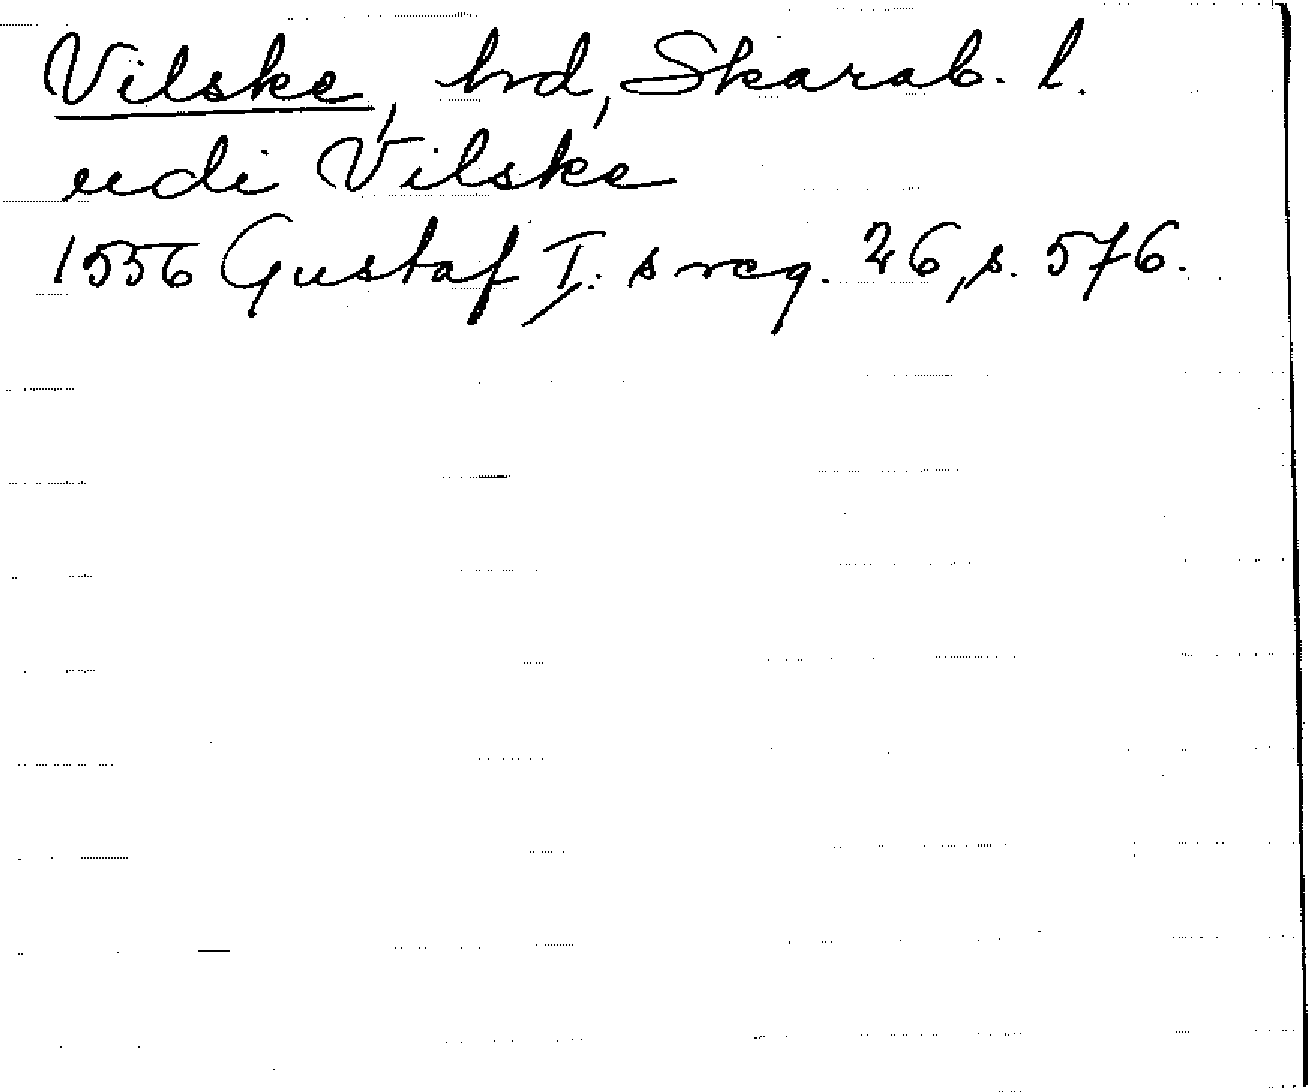 Vilske, hrd, Skarab. l.
udi Vilske
1556 Gustaf I:s reg. 26, s. 576.